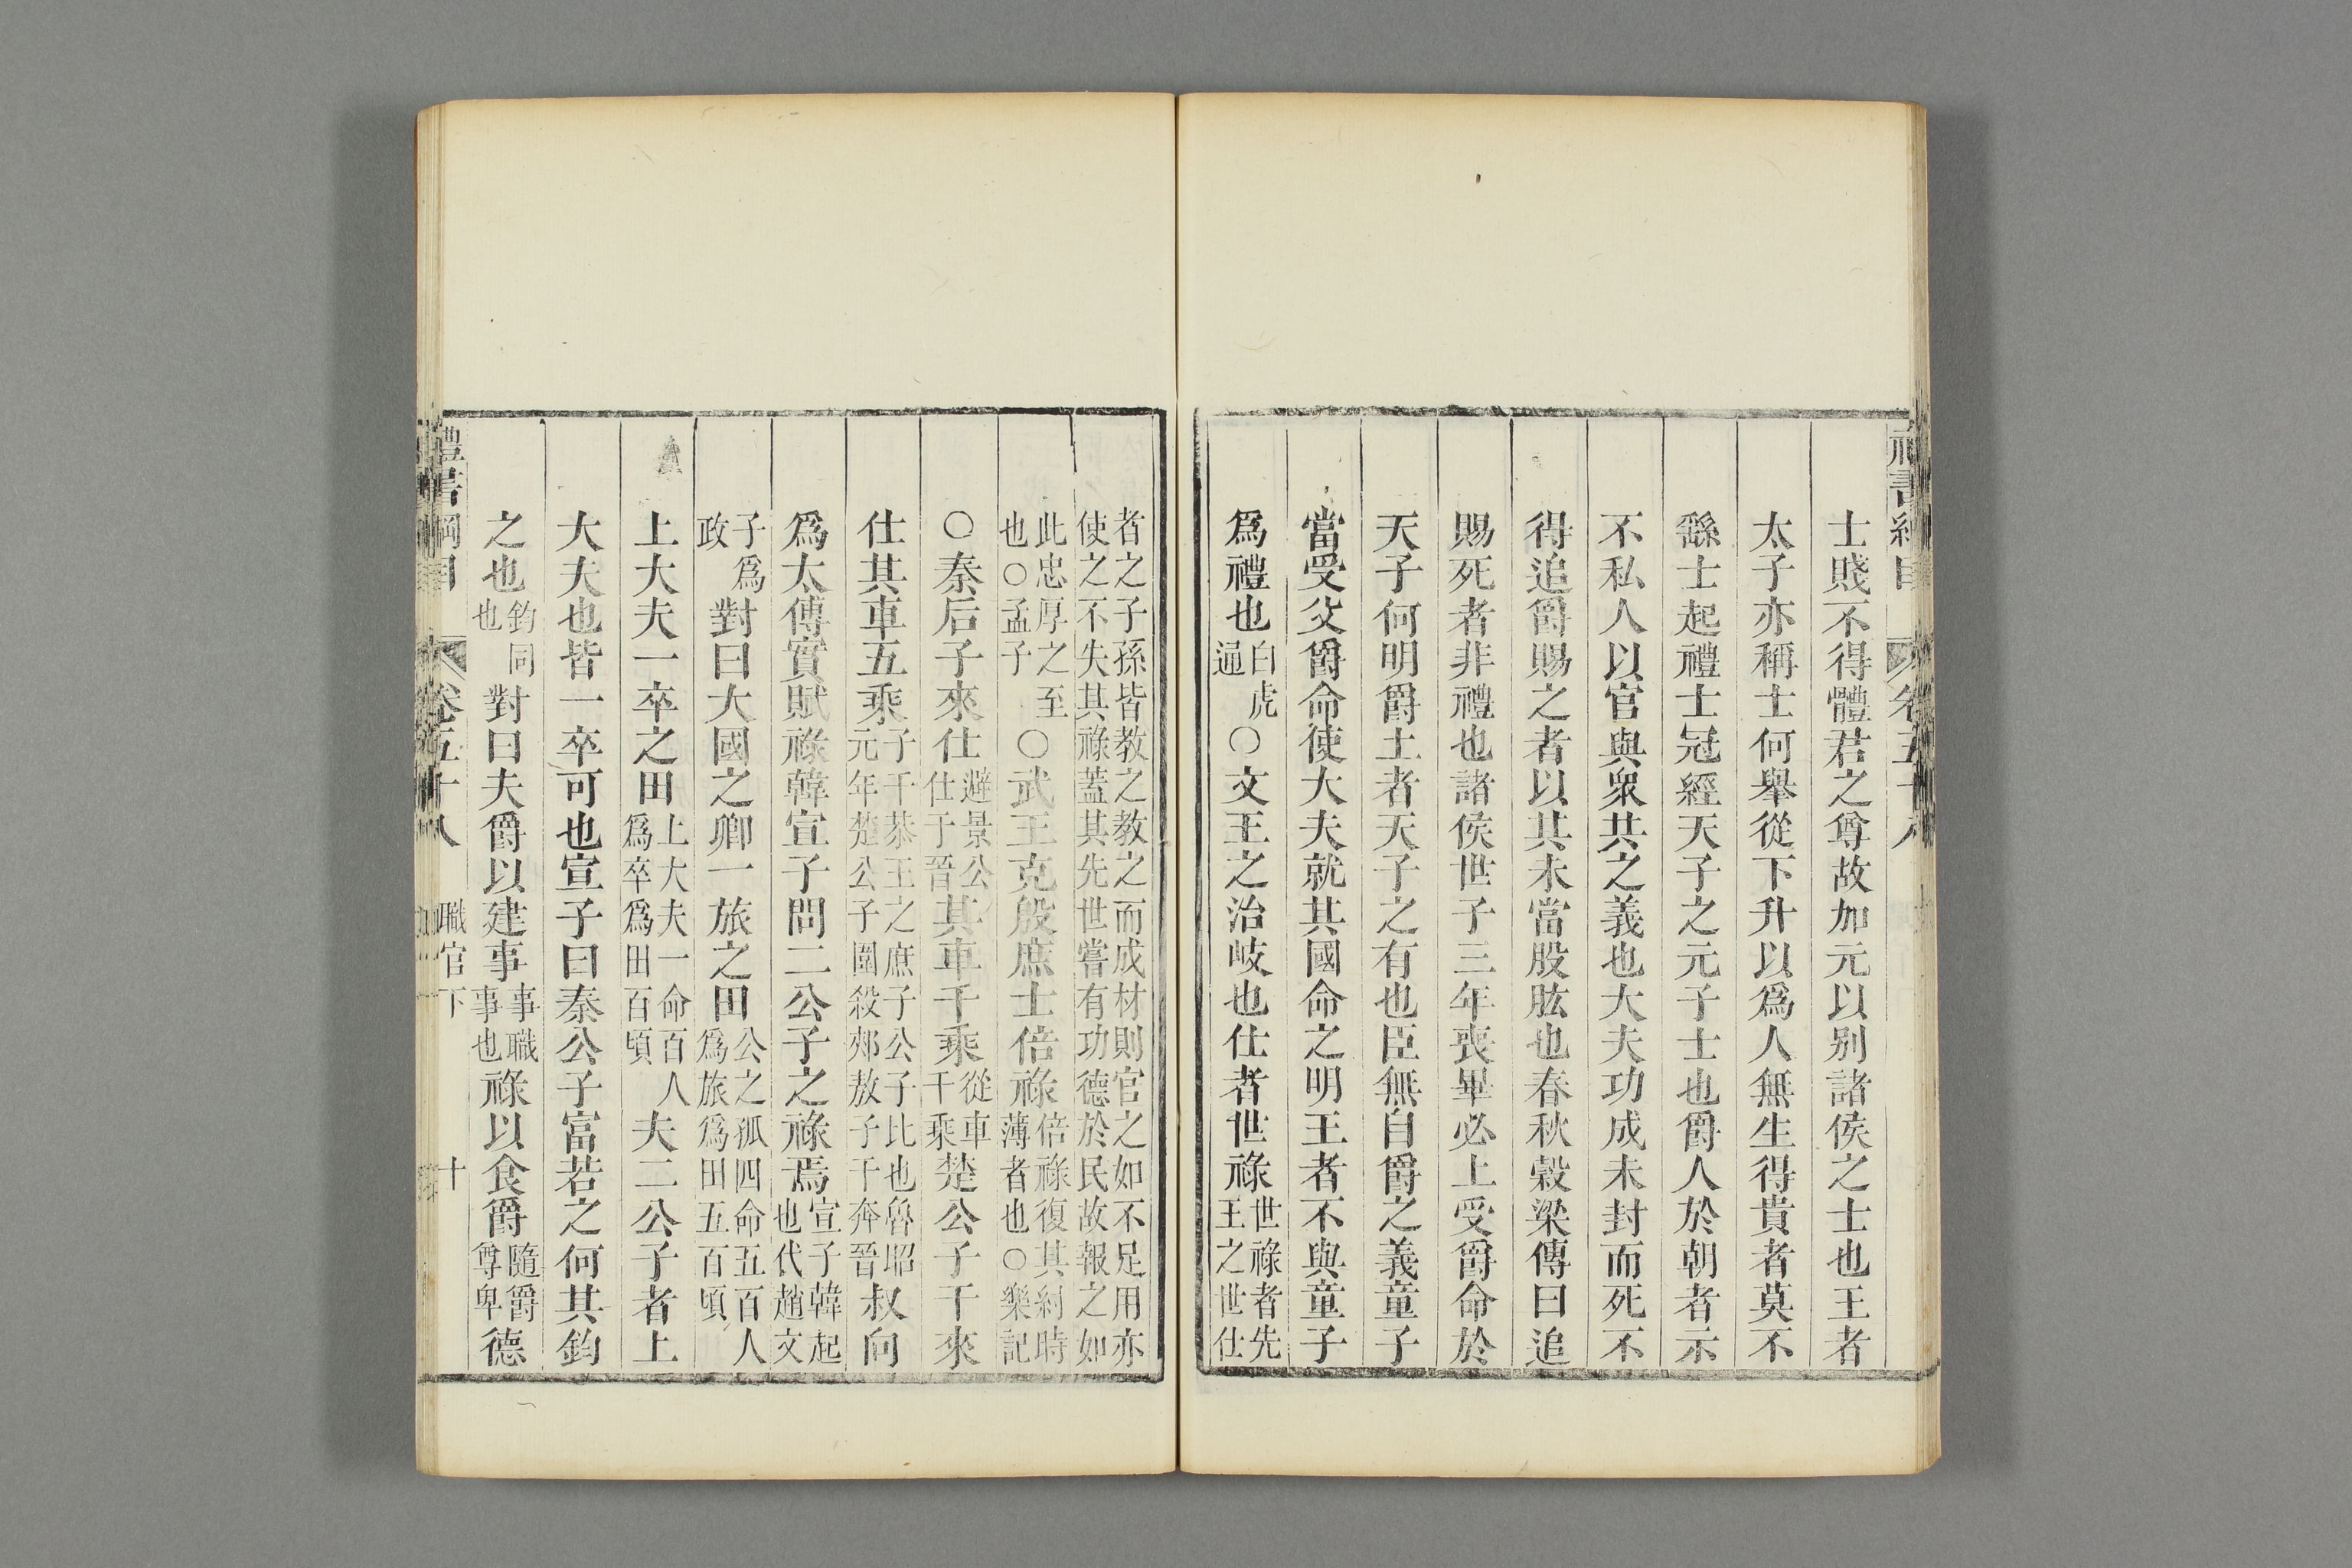 士賤不得體君之尊故加元以别諸侯之士也王者
太子亦稱士何舉從下升以爲人無生得貴者莫不
繇士起禮士冠經天子之元子士也爵人於朝者示
不私人以官與衆共之義也大夫功成未封而死不
得追爵賜之者以其未當股肱也春秋穀梁傳曰追
賜死者非禮也諸侯世子三年喪畢必上受爵命於
天子何明爵土者天子之有也臣無自爵之義童子
當受父爵命使大夫就其國命之明王者不與童子
爲禮也白虎通〇文王之治岐也仕者世祿世祿者先王之世仕
者之子孫皆教之教之而成材則官之如不足用亦使之不失其祿蓋其先世嘗有功德於民故報之如
此忠厚之至也〇孟子〇武王克殷庶士倍祿倍祿復其紂時薄者也〇樂記
〇秦后子來仕避景公仕于晉其車千乘從車千乘楚公子干來
仕其車五乘子干恭王之庶子公子比也魯昭元年楚公子圍殺郟敖子干奔晉叔向
爲太傅實賦祿韓宣子問二公子之祿焉宣子韓起也代趙文
子爲政對曰大國之卿一旅之田公之孤四命五百人爲旅爲田五百頃
上大夫一卒之田上大夫一命百人爲卒爲田百頃夫二公子者上
大夫也皆一卒可也宣子曰秦公子富若之何其鈞
之也鈞同也對曰夫爵以建事事職事也祿以食爵隨爵尊卑德
禮書綱目 卷五十八 職官下 十